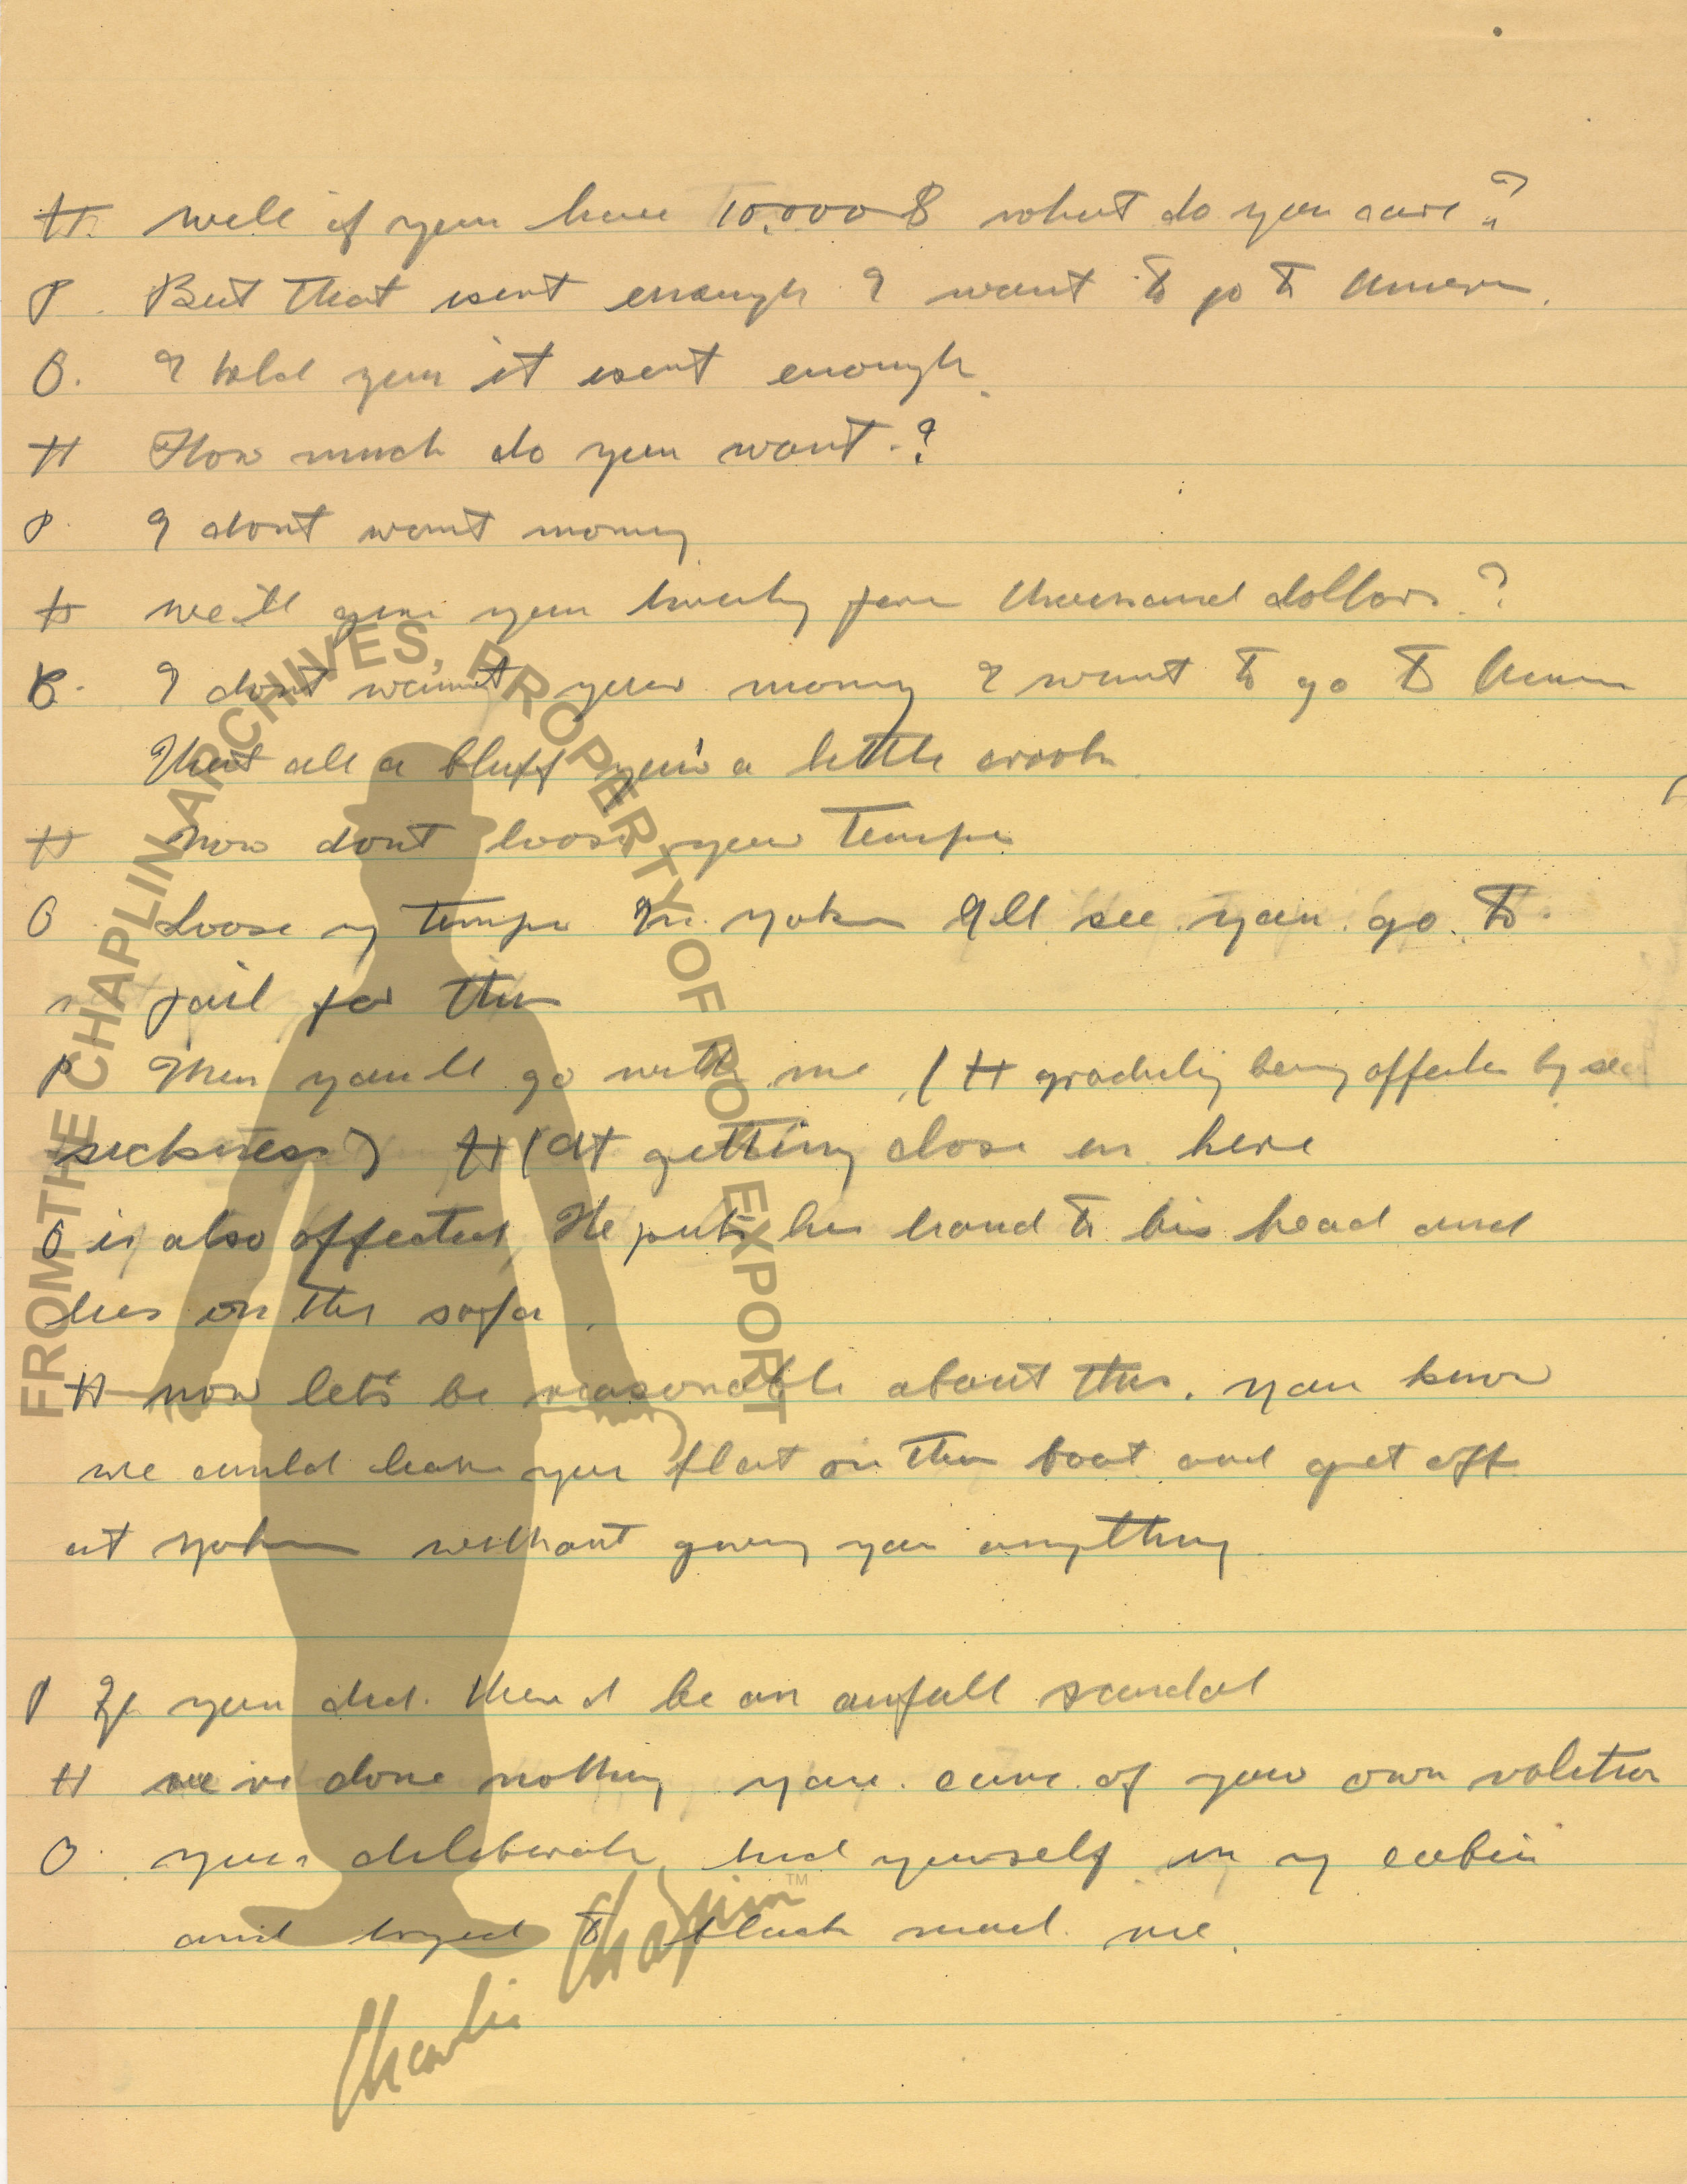 H. well if you have 10,000 $ what do you care?
P. But that isent enough I want to go to Amer.
O. I told you it isent enough.
H How much do you want.?
P. I dont want money
H we'll give you twenty five thousand dollars.?
I dont want your money I want to go to Amer
O. That all a bluff your a little crook
H Now dont loose your temper
O. Loose my temper In Yoko I'll see you go to
jail for this
P Then you'll go with me (H gradually being affected by sea
sickness) H (It getting close in here
O is also affected, He puts his hand to his head and
lies on the sofa.
H now let's be reasonable about this. you know
we could leave you flat on this boat and get off
at Yoko without giving you anything
P If you did. there'd be an awfull scandal
H we've done nothing you came of your own volition
O. you deliberate hid yourself in my cabin
and tryed to black mail me.
FROM THE CHAPLIN ARCHIVES, PROPERTY OF ROY EXPORT
Charlie Chaplin
TM